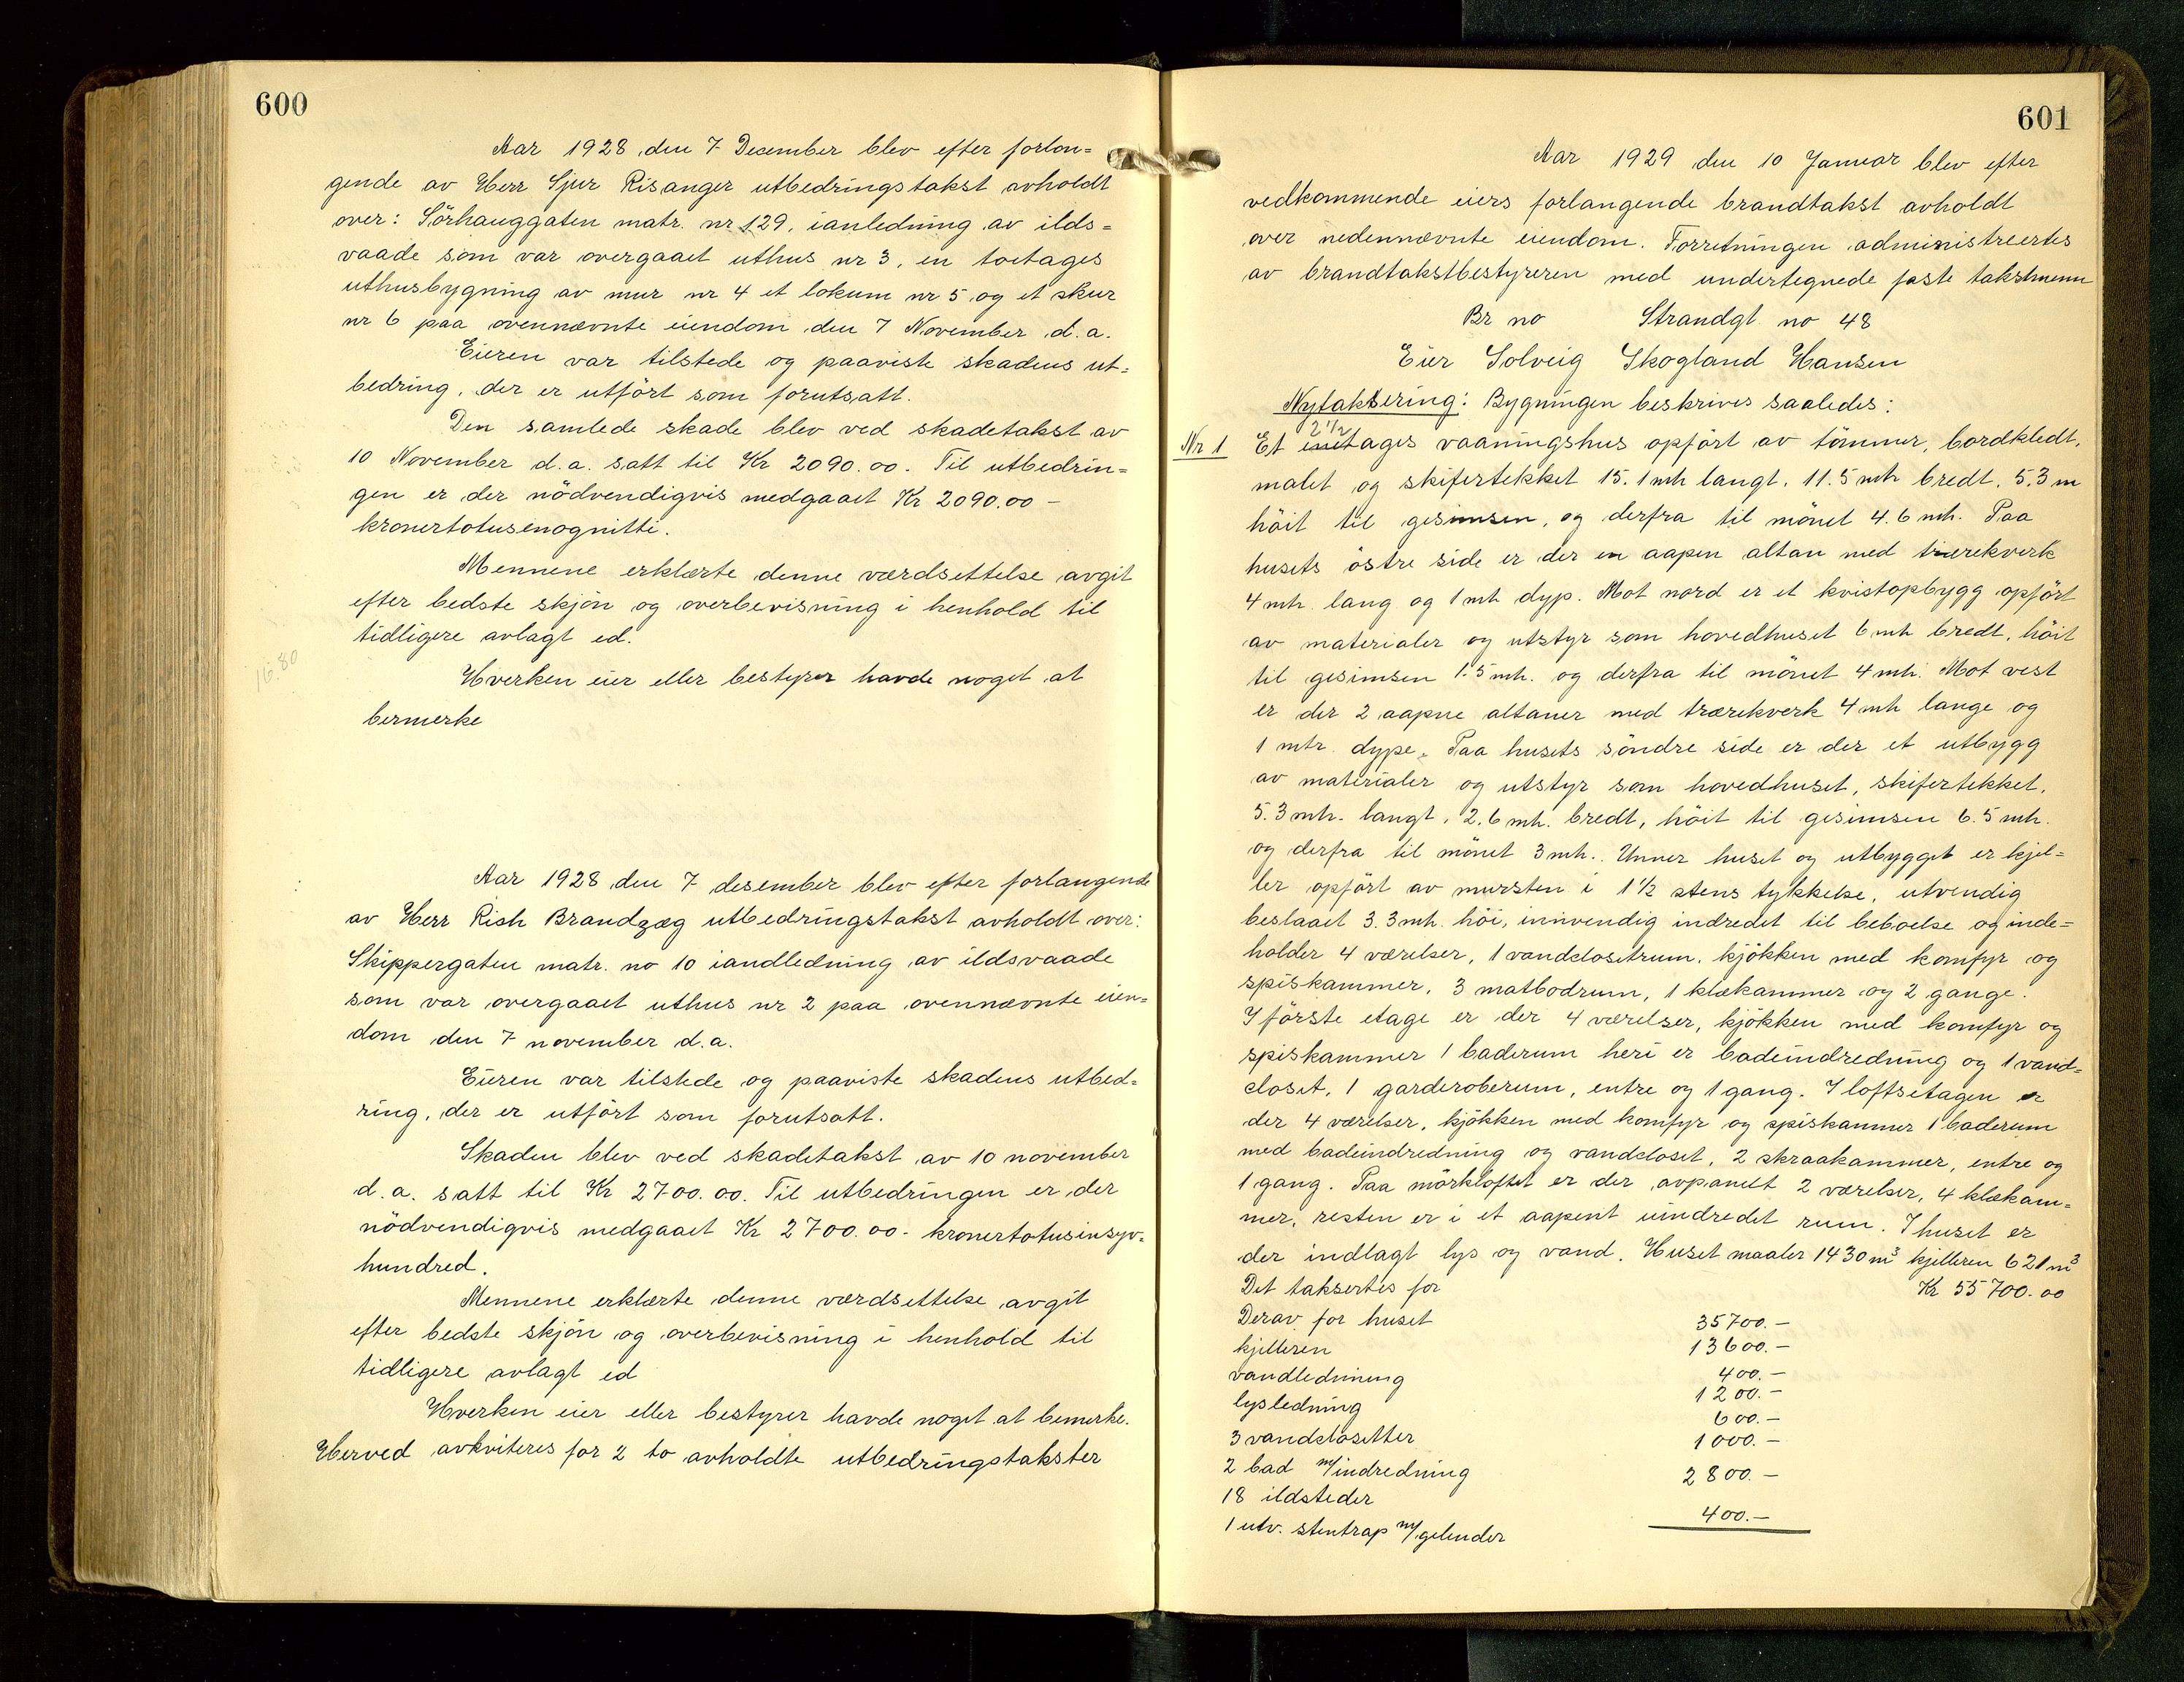 600
Aar 1928 den 7 December blev efter forlon=
gende av Herr Sjur Risanger utbedringstakst avholdt
over: Sörhauggaten matr. nr 129, ianledning av ilds=
vaade som var overgaaet uthus nr 3, en toetages
uthusbygning av mur nr 4 et lokum nr 5 og et skur
nr 6 paa ovennævnte eiendom den 7 November d.a.
Eieren var tilstede og paaviste skadens ut=
bedring, der er utfört som forutsatt.
Den samlede skade blev ved skadetakst av
10 November d.a. satt til Kr 2090.00. Til utbedrin=
gen er der nödvendigvis medgaaet Kr 2090.00 –
kronertotusenognitti.
Mennene erklærte denne værdsettelse avgit
efter bedste skjön og overbevisning i henhold til
tidligere avlagt ed.
16.80
Hverken eier eller bestyrer havde noget at
bermerke
Aar 1928 den 7 desember blev efter forlangende
av Herr Rish Brandzæg utbedringstakst avholdt over:
Skippergaten matr. no 10 iandledning av ildsvaade
som var overgaaet uthus nr 2 paa ovennævnte eien=
dom den 7 november d.a.
Eieren var tilstede og paaviste skadens utbed=
ring, der er utfört som forutsatt.
Skaden blev ved skadetakst av 10 november
d.a. satt til Kr 2700.00. Til utbedringen er der
nödvendigvis medgaaet Kr 2700.00 - kronertotusinsyv=
hundred.
Mennene erklærte denne værdsettelse avgit
efter bedste skjön og overbevisning i henhold til
tidligere avlagt ed
Hverken eier eller bestyrer havde noget at bemerke.
Herved avkviteres for 2 to avholdte utbedringstakster
601
Aar 1929 den 10 Januar blev efter
vedkommende eiers forlangende brandtakst avholdt
over nedennævnte eiendom. Forretningen administreertes
av brandtakstbestyreren med undertegnede faste takstmenn
Br no Strandgt no 48
Eier Solveig Skogland Hansen
Nytaksering: Bygningen beskrives saaledes:
Nr 1 Et 2 1/2 etages vaaningshus opfört av tömmer, bordkledt,
malet og skifertekket 15.1 mtr langt, 11.5 mtr bredt, 5.3 m
höit til gesimsen, og derfra til mönet 4.6 mtr. Paa
husets östre side er der en aapen altan med trærekverk
4 mtr lang og 1 mtr dyp. Mot nord er et kvistopbygg opfört
av materialer og utstyr som hovedhuset 6 mtr bredt, höit
til gesimsen 1.5 mtr. og derfra til mönet 4 mtr. Mot vest
er der 2 aapne altaner med trærekverk 4 mtr lange og
1 mtr. dype. Paa husets söndre side er der et utbygg
av materialer og utstyr som hovedhuset, skifertekket,
5.3 mtr. langt, 2.6 mtr. bredt, höit til gesimsen 6.5 mtr.
og derfra til mönet 3 mtr. Unner huset og utbygget er kjel=
ler opfört av mursten i 1 1/2 stens tykkelse, utvendig
beslaaet 3.3 mtr. höi, innvendig indredet til beboelse og inde=
holder 4 værelser, 1 vandclosetrum, kjökken med komfyr og
spiskammer, 3 matbodrum, 1 klækammer og 2 gange.
I förste etage er der 4 værelser, kjökken med komfyr og
spiskammer 1 baderum heri er badeindredning og 1 vand=
closet, 1 garderoberum, entre og 1 gang. I loftsetagen er
der 4 værelser, kjökken med komfyr og spiskammer 1 baderum
med badeindredning og vandcloset, 2 skraakammer, entre og
1 gang. Paa mörkloftet er der avpanelt 2 værelser, 4 klækam=
mer, resten er i et aapent uindredet rum. I huset er
der indlagt lys og vand. Huset maaler 1430 m³ kjelleren 621 m³
Det taksertes for Kr 55700.00
Derav for huset 35700.–
kjelleren 13600.–
vandledning 400.–
lysledning 1200.–
3 vandclosetter 600.–
2 bad m/indredning 1000.–
18 ildsteder 2800.–
1 utv. stentrap m/gelender 400.–